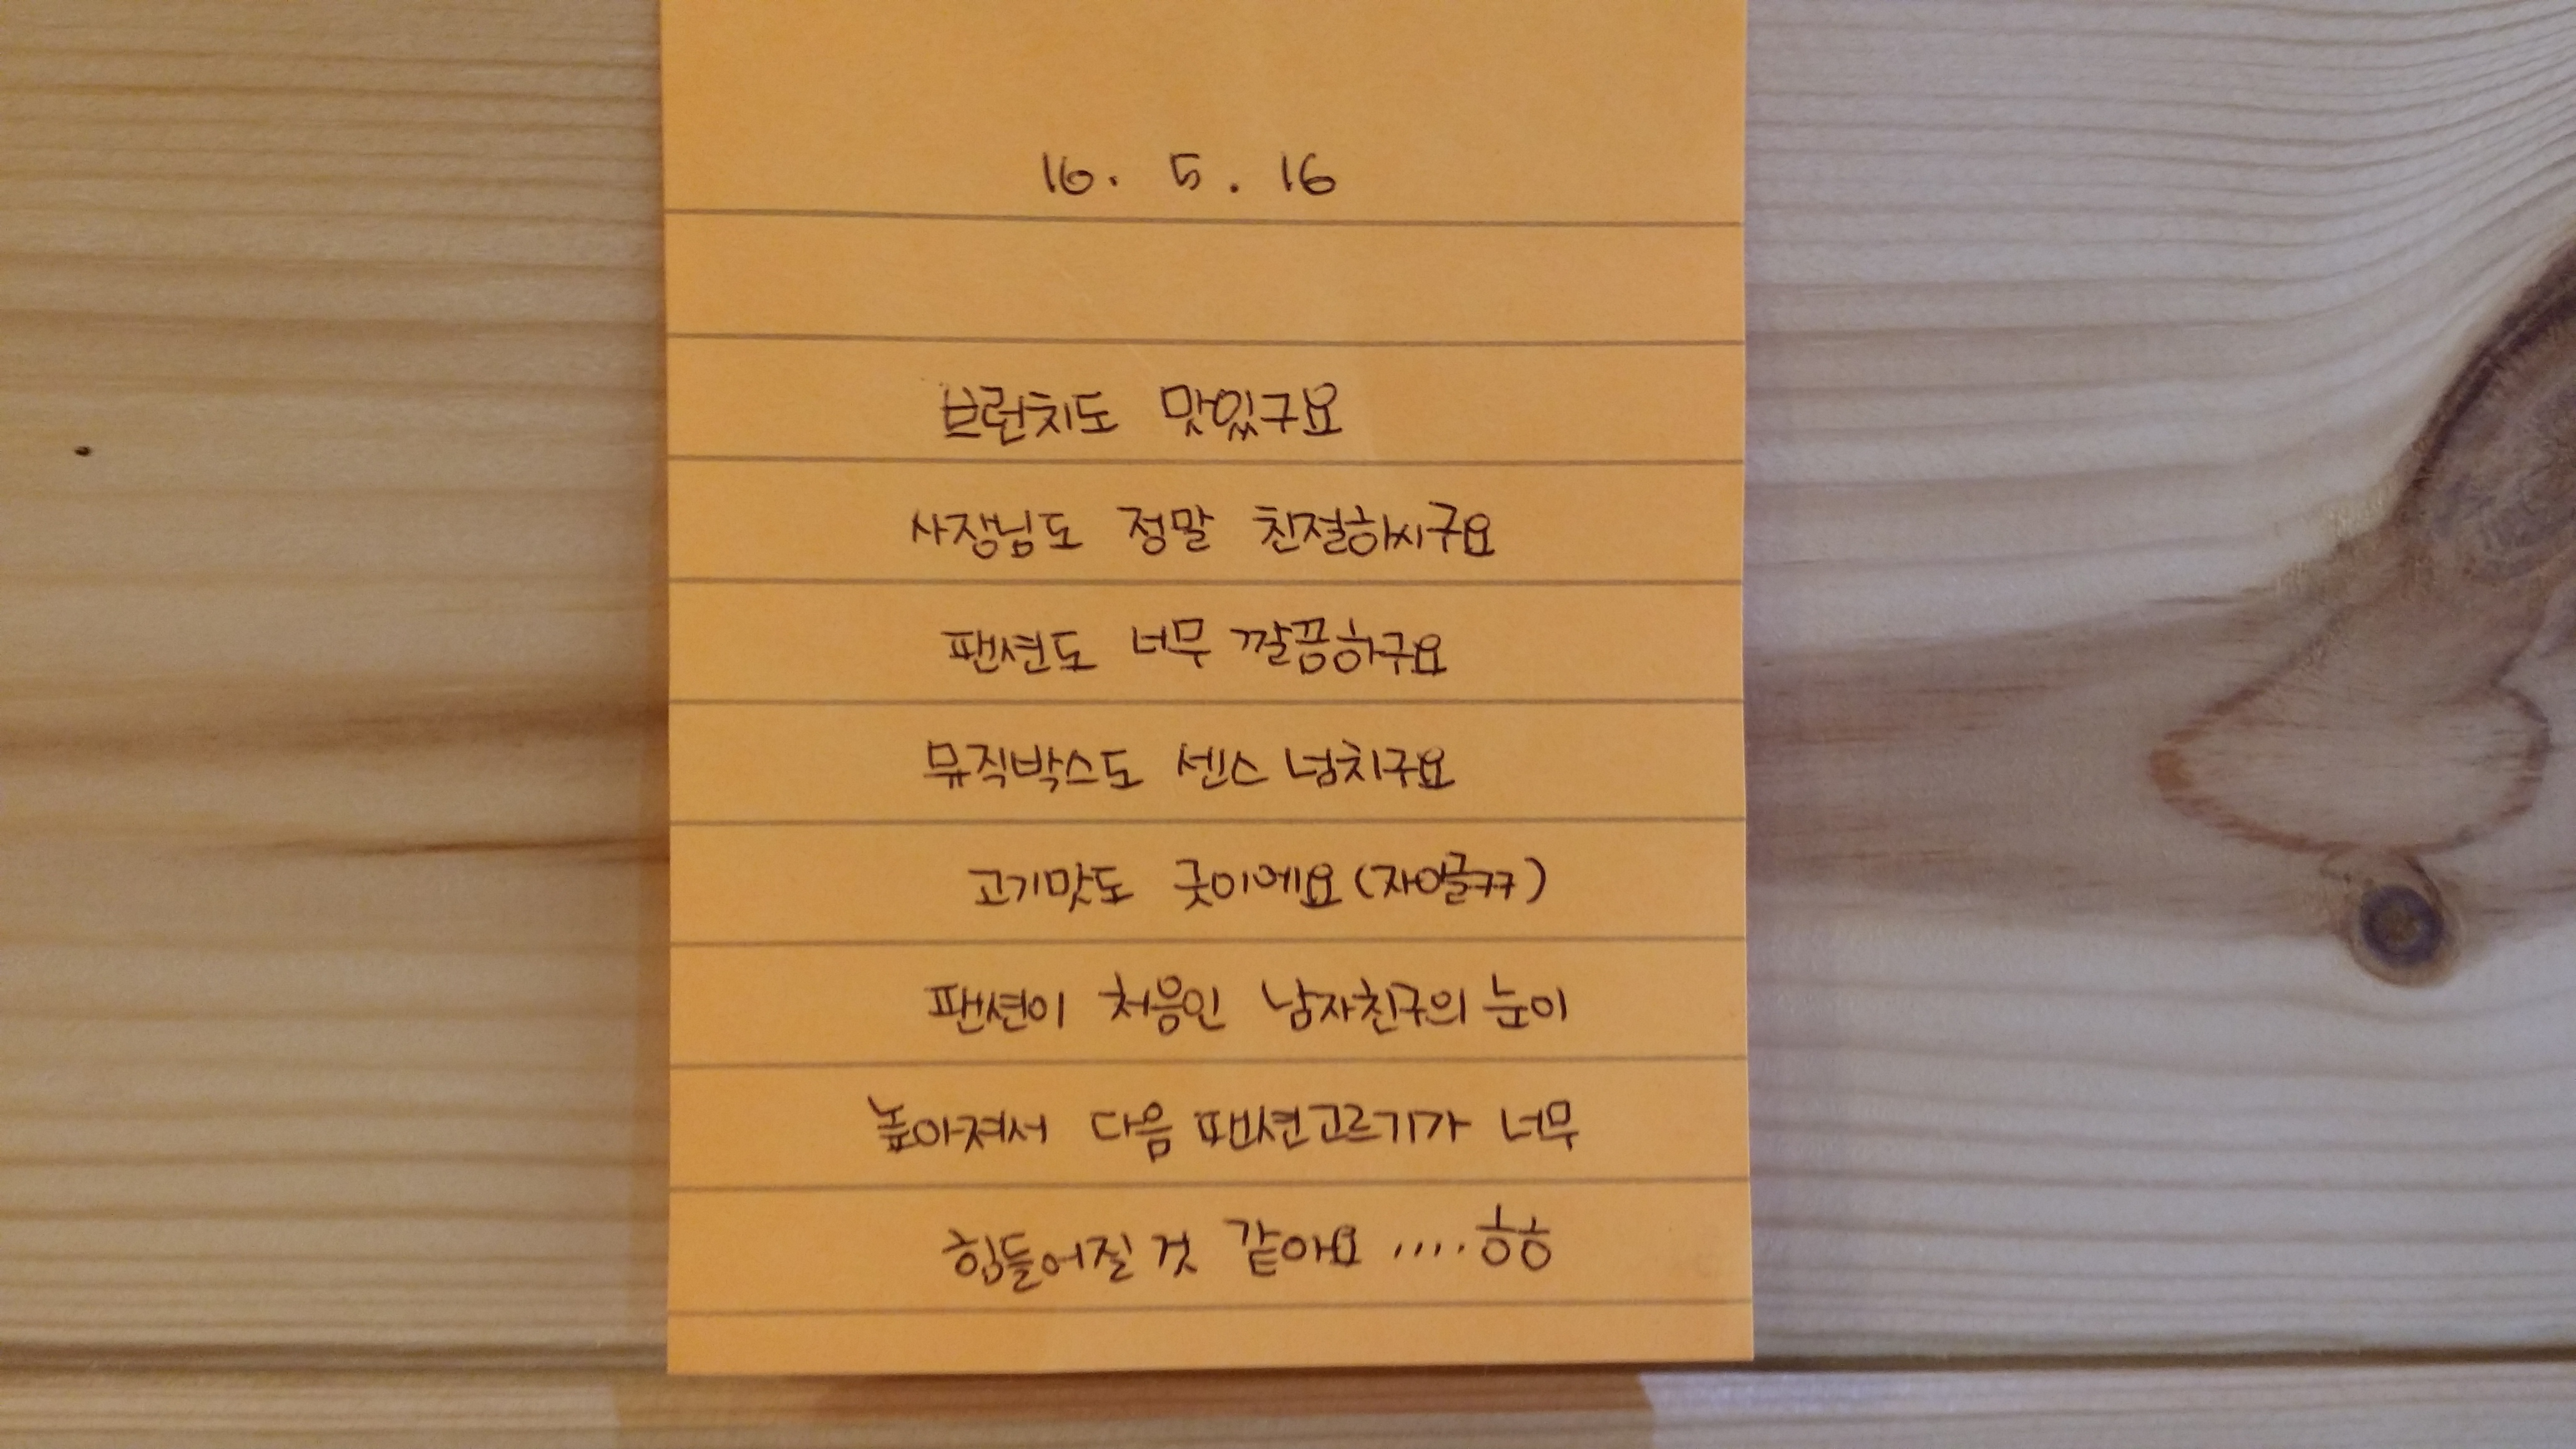 16. 5. 16
브런치도 맛있구요
사장님도 정말 친절하시구요
팬션도 너무 깔끔하구요
뮤직박스도 센스 넘치구요
고기맛도 굿이에요 (자이글ㅋㅋ)
팬션이 처음인 남자친구의 눈이
높아져서 다음 팬션고르기가 너무
힘들어질 것 같아요 .... 흥흥